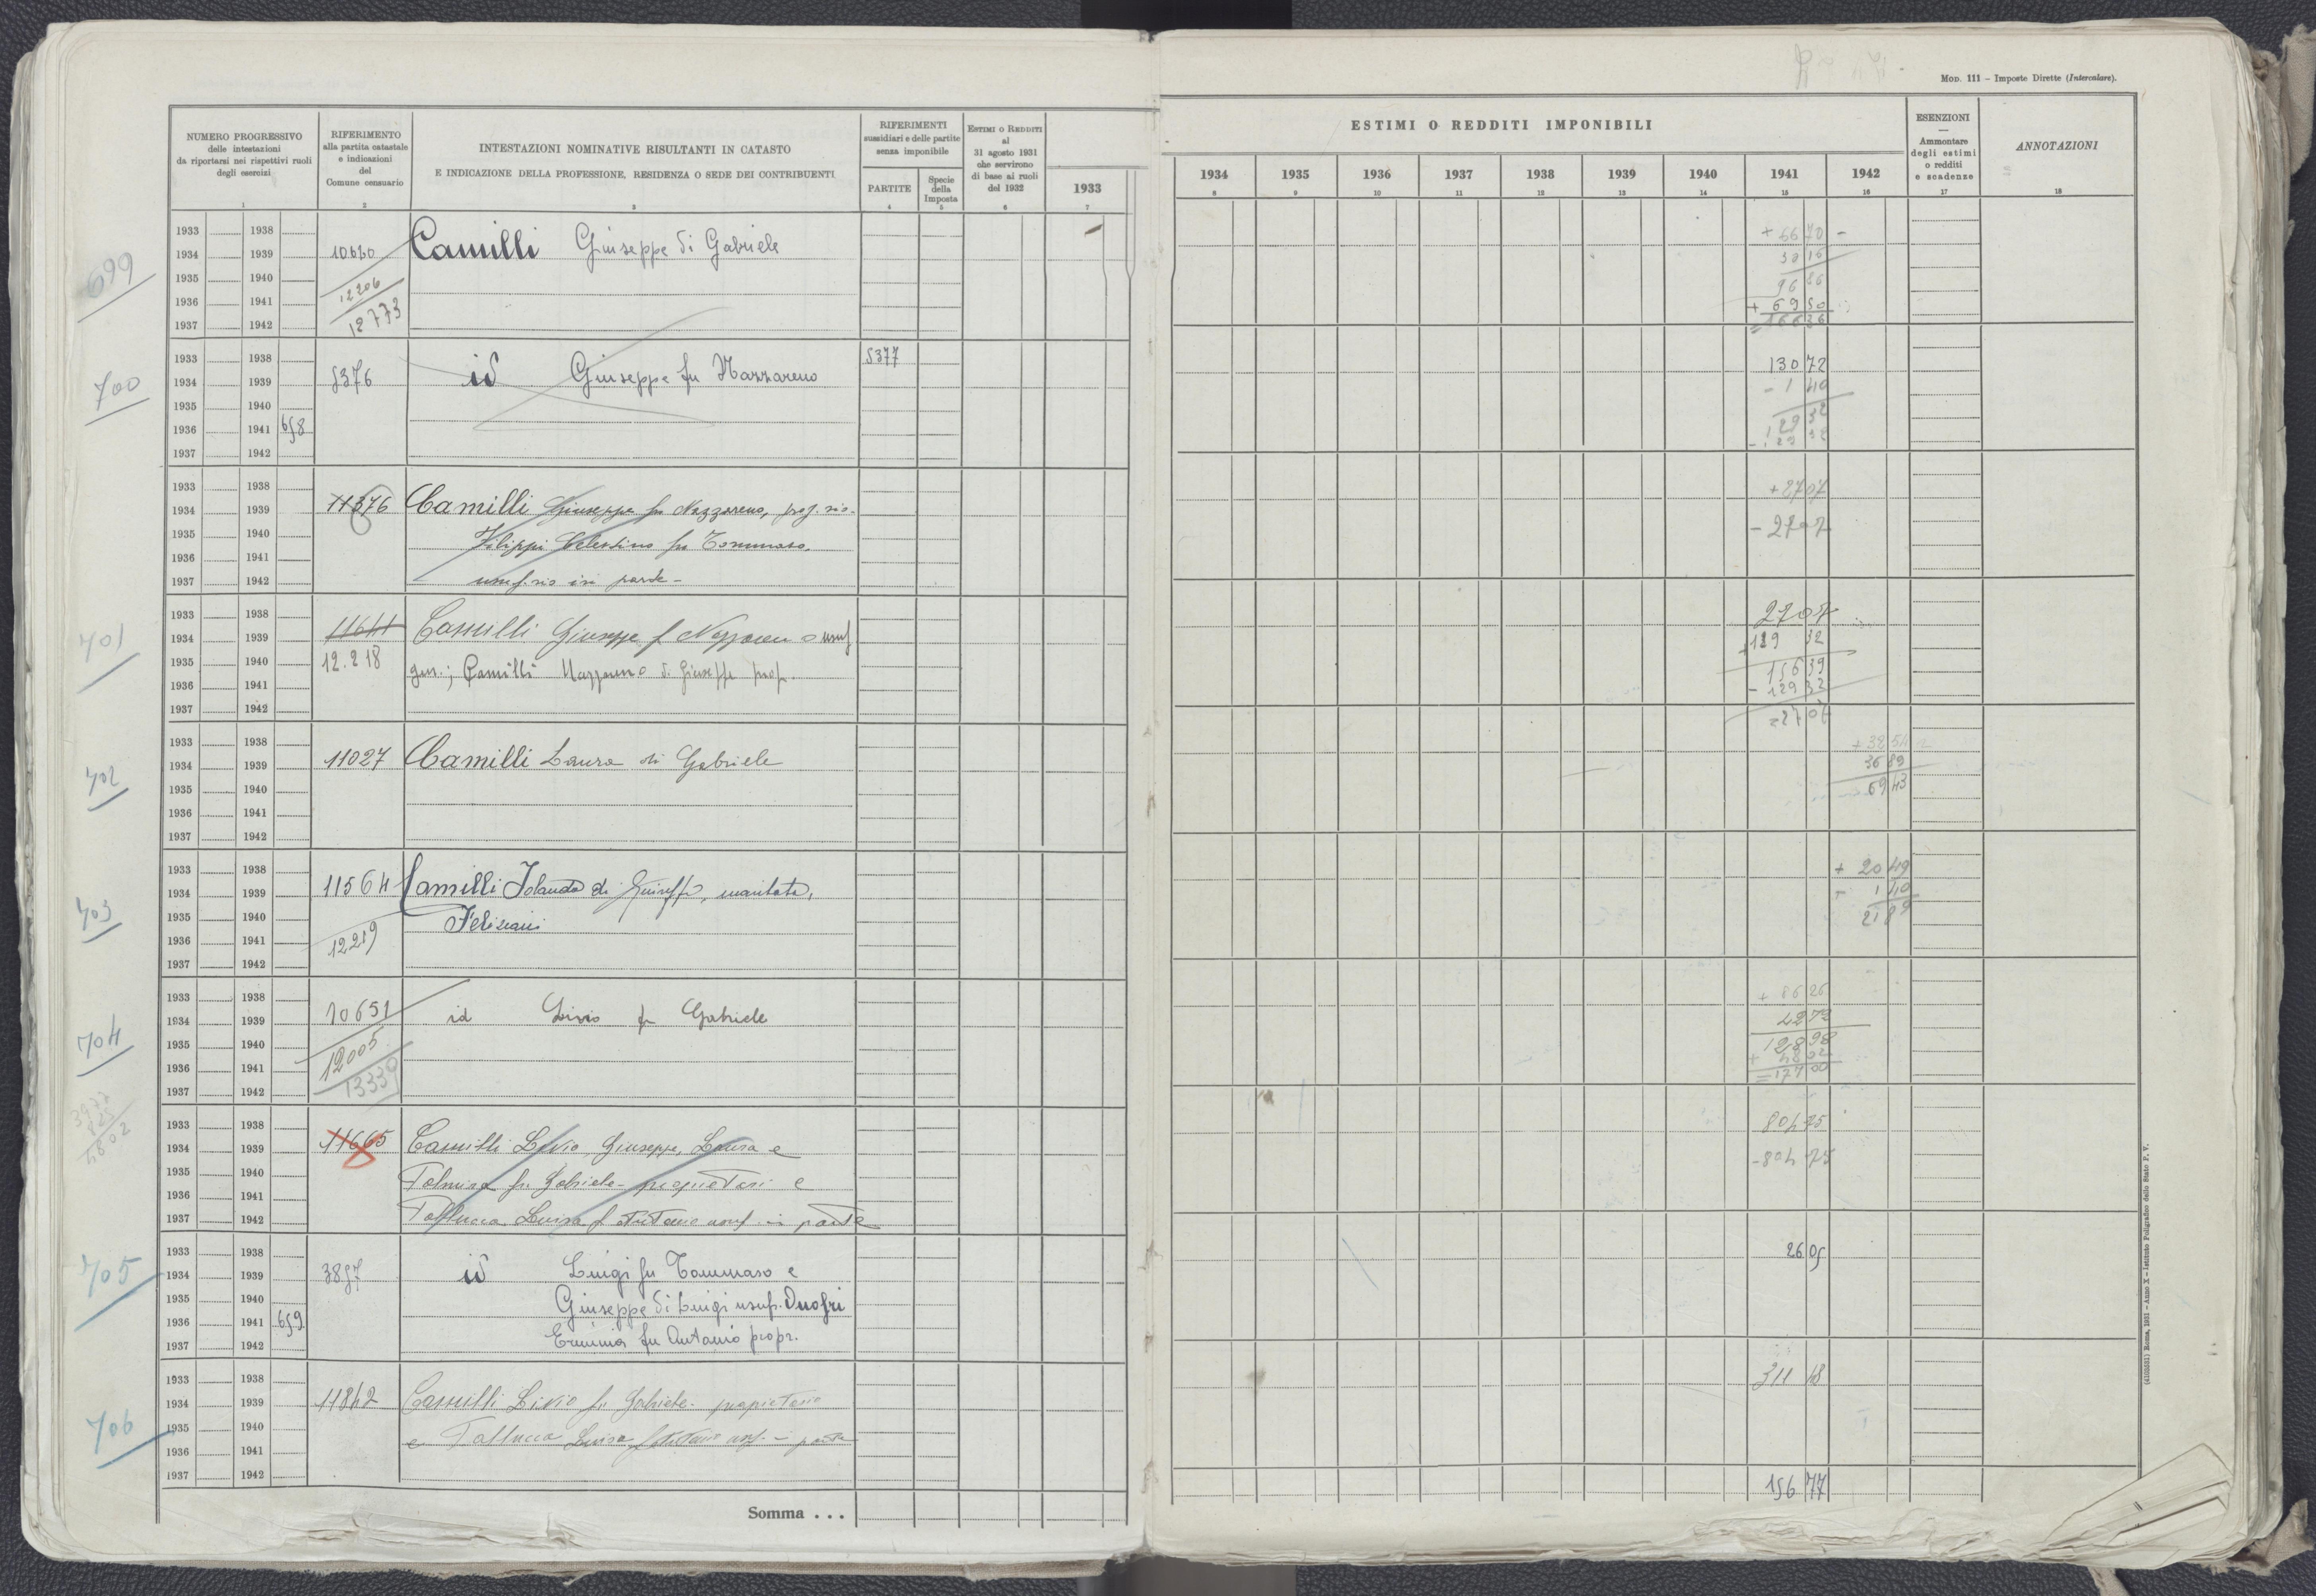 MOD. 111 – Imposte Dirette (Intercalare).
NUMERO PROGRESSIVO
delle intestazioni
da riportarsi nei rispettivi ruoli
degli esercizi
1
RIFERIMENTO
alla partita catastale
e indicazioni
del
Comune censuario
2
INTESTAZIONI NOMINATIVE RISULTANTI IN CATASTO
E INDICAZIONE DELLA PROFESSIONE, RESIDENZA O SEDE DEI CONTRIBUENTI
3
RIFERIMENTI
sussidiari e delle partite
senza imponibile
PARTITE
4
Specie
della
Imposta
5
ESTIMI O REDDITI
al
31 agosto 1931
che servirono
di base ai ruoli
del 1932
6
1933
7
ESTIMI O REDDITI IMPONIBILI
1934 1935 1936 1937 1938 1939 1940 1941 1942
8 9 10 11 12 13 14 15 16
ESENZIONI
—
Ammontare
degli estimi
o redditi
e scadenze
17
ANNOTAZIONI
18
699
1933 1938
1934 1939 10620 Camilli Giuseppe di Gabriele
1935 1940
1936 1941 12206
1937 1942 12773
+ 66 70 -
30 16
96 86
+ 69 50
= 166 36
700
1933 1938 5377
1934 1939 5376 id Giuseppe fu Nazzareno
1935 1940
1936 1941 658
1937 1942
130 72
- 1 40
129 32
- 129 32
1933 1938
1934 1939 11376 Camilli Giuseppe fu Nazzareno, prop. rio-
1935 1940 Filippi Celestino fu Tommaso,
1936 1941
1937 1942 usuf. rio in parte -
+ 27 07
- 27 07
701
1933 1938
1934 1939 11641 Camilli Giuseppe f Nazzareno usuf
1935 1940 12.218 gen.; Camilli Nazzareno di Giuseppe prop.
1936 1941
1937 1942
27 07
+ 129 32
156 39
- 129 32
= 27 07
702
1933 1938
1934 1939 11027 Camilli Laura di Gabriele
1935 1940
1936 1941
1937 1942
+ 32 54
36 89
69 43
703
1933 1938
1934 1939 11564 Camilli Iolanda di Giuseppe, maritata,
1935 1940 Feliziani
1936 1941 12219
1937 1942
+ 20 49
- 1 40
21 89
704
1933 1938
1934 1939 10651 id Livio fu Gabriele
1935 1940
1936 1941 12005
1937 1942 13339
+ 86 26
42 72
128 98
+ 48 02
= 177 00
3977
825
4802
1933 1938
1934 1939 11665 Camilli Livio, Giuseppe, Laura e
1935 1940
1936 1941 Palmira fu Gabriele - proprietari e
1937 1942 Luisa f Antonio usuf. in parte
804 75
- 804 75
705
1933 1938
1934 1939 3857 id Luigi fu Tommaso e
1935 1940 Giuseppe di Luigi usuf. Onofri
1936 1941 659
1937 1942 Erminia fu Antonio propr.
26 05
706
1933 1938
1934 1939 11842 Camilli Livio fu Gabriele - proprietario
1935 1940 e Luisa f Antonio usuf. in parte
1936 1941
1937 1942
311 18
Somma . . .
156 77
(4103331) Roma, 1931 – Anno X – Istituto Poligrafico dello Stato P. V.